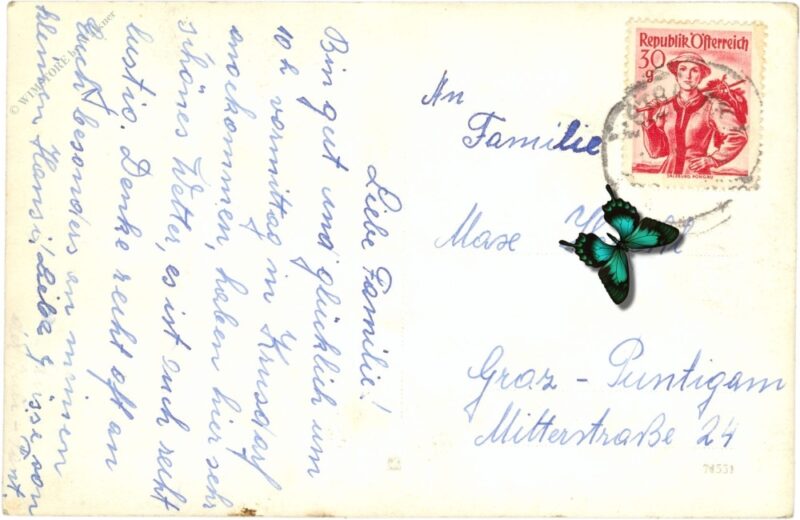 Liebe Familie!
Bin gut und glücklich um
10 h vormittag in Krusdorf
angekommen, haben hier sehr
schönes Wetter, es ist auch recht
lustig. Denke recht oft an
Euch besonders an meinen
kleinen Hansi! Liebe Grüsse von
An
Familie
Max
Graz - Puntigam
Mitterstraße 24
Republik Österreich
30
g
SALZBURG, PONGAU